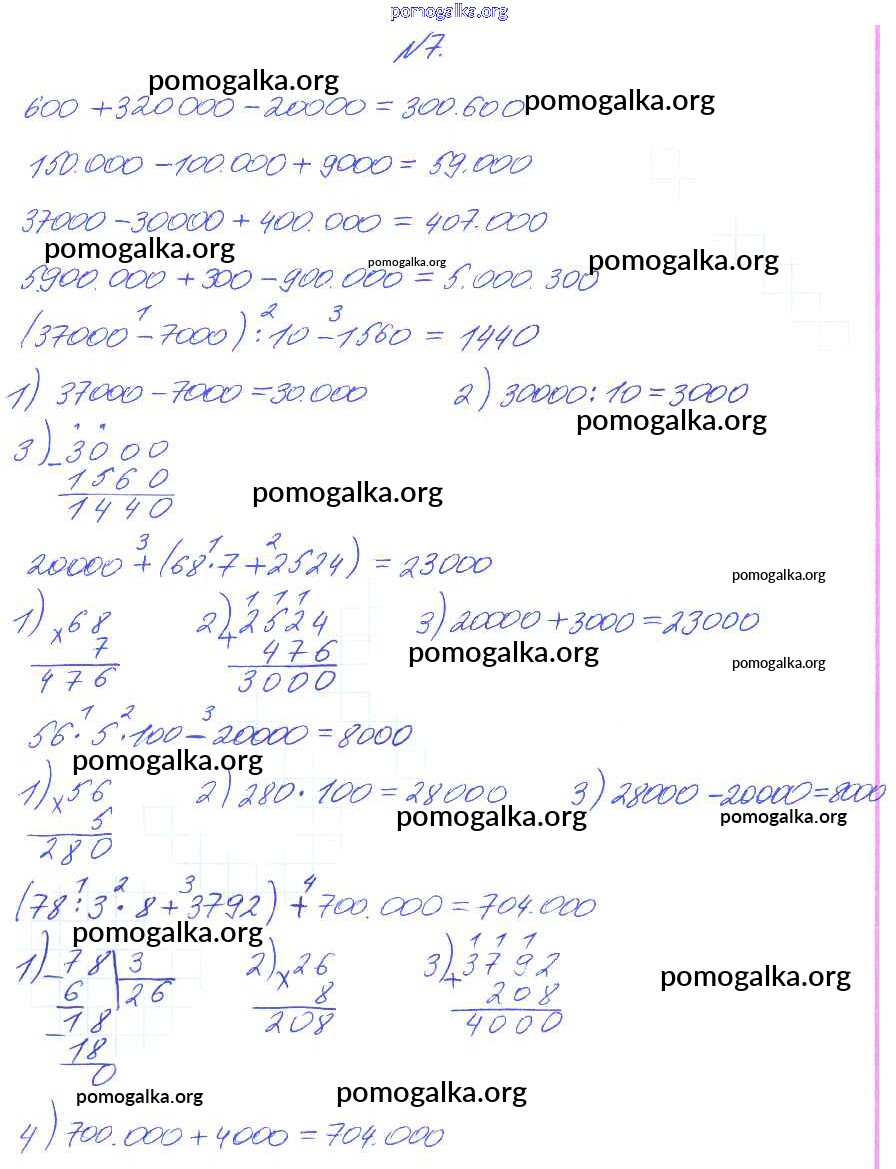 pomogalka.org
№7.
pomogalka.org
600 + 320 000 - 20000 = 300.600 pomogalka.org
150.000 - 100.000 + 9000 = 59.000
37000 - 30000 + 400.000 = 407.000
pomogalka.org pomogalka.org pomogalka.org
5900.000 + 300 - 900.000 = 5.000.300
1 2 3
(37000 - 7000) : 10 - 1560 = 1440
1) 37000 - 7000 = 30.000 2) 30000 : 10 = 3000
pomogalka.org
3) - 3000
1560
1440
pomogalka.org
3 1 2
20000 + (68 · 7 + 2524) = 23000
pomogalka.org
1 1 1
1) x 68 2) + 2524 3) 20000 + 3000 = 23000
7 476 pomogalka.org pomogalka.org
476 3000
1 2 3
56 · 5 · 100 - 20000 = 8000
pomogalka.org
1) x 56 2) 280 · 100 = 28000 3) 28000 - 20000 = 8000
5 pomogalka.org pomogalka.org
280
1 2 3 4
(78 : 3 · 8 + 3792) + 700.000 = 704.000
pomogalka.org
1 1 1
1) - 78 3 2) x 26 3) + 3792
6 26 8 208 pomogalka.org
- 18 208 4000
18
0
pomogalka.org pomogalka.org
4) 700.000 + 4000 = 704.000